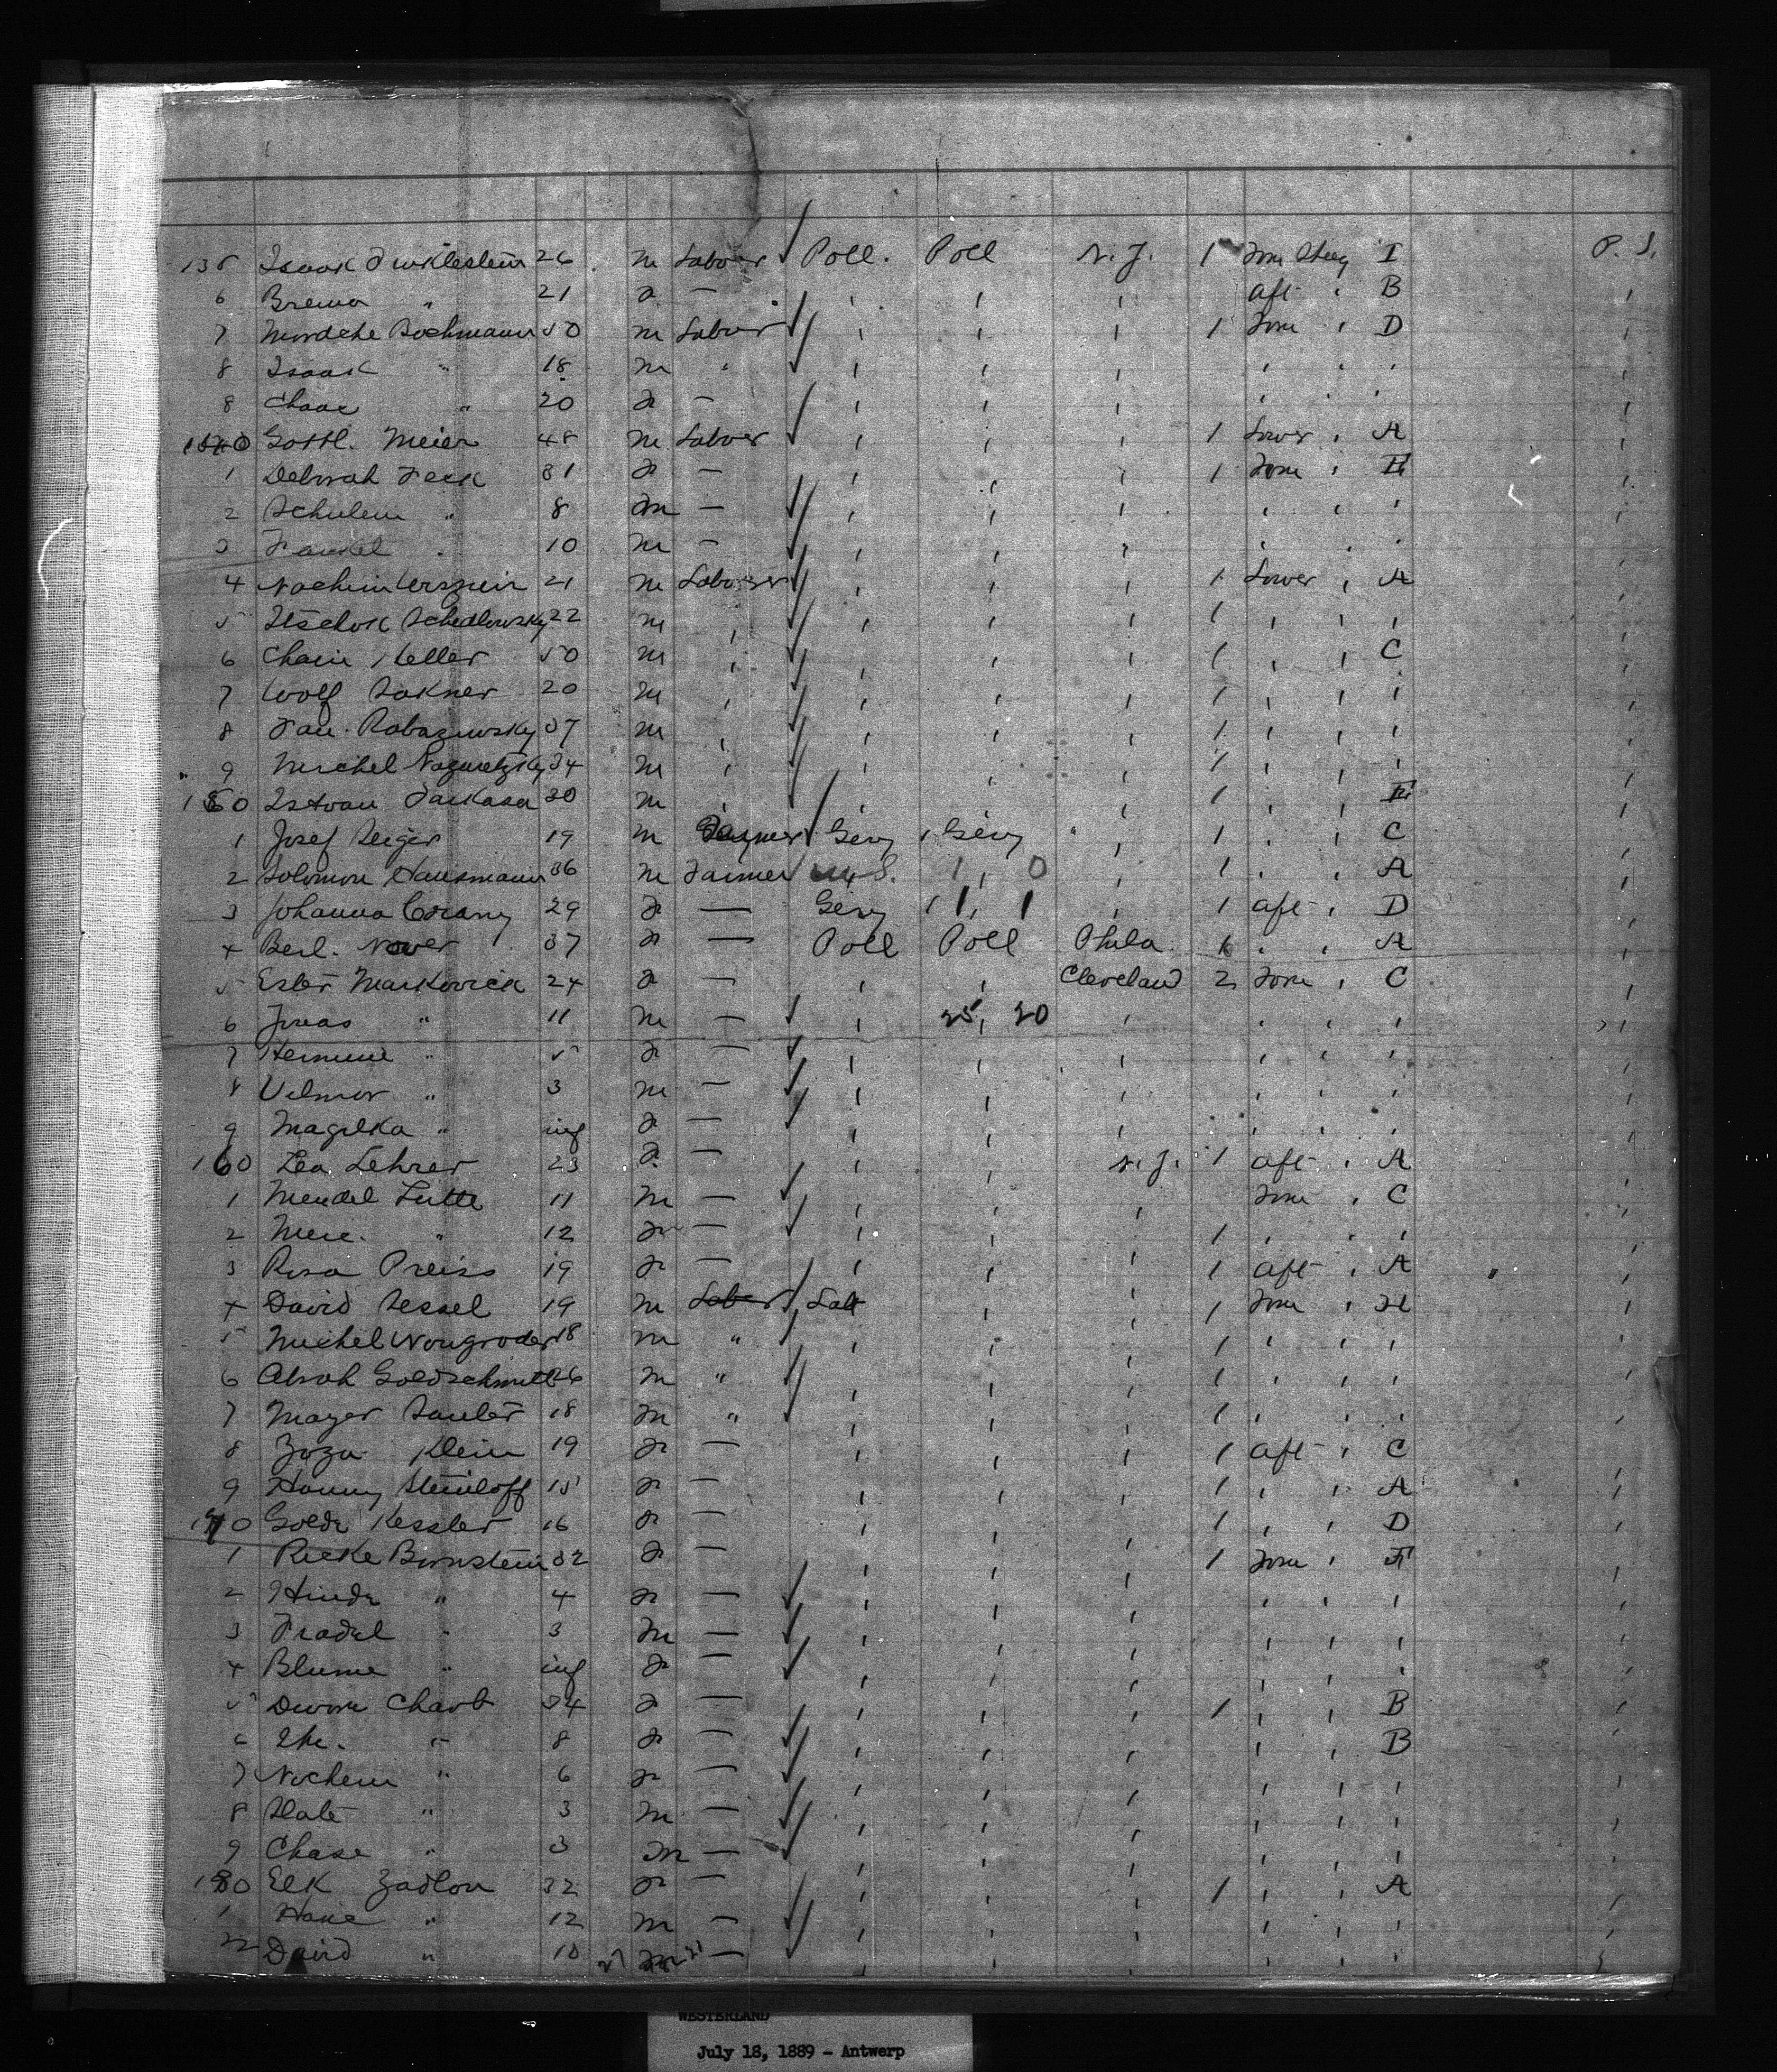 135 Isaak Finkelstein 26 m Labour Poll. Poll N.J. 1 Forw Steeg I P. S.
6 Brema " 21 f — ' ' ' aft ' B '
7 Mordche Bochmann 50 m Labour ' ' ' 1 Forw ' D '
8 Isaak " 18 m " ' ' ' ' ' ' '
8 Chaae " 20 f — ' ' ' ' ' ' '
140 Gottl. Meier 48 m Labour ' ' ' 1 Lower ' A '
1 Deborah Feck 31 f — ' ' ' 1 Forw '
2 Schulem " 8 m — ' ' ' ' ' ' '
3 Frankel " 10 m — ' ' ' ' ' ' '
4 Nochim 21 m Labourer ' ' ' 1 Lower ' A '
5 Itschok Schedlowsky 22 m ' ' ' ' 1 ' ' ' '
6 Chaim Keller 50 m ' ' ' ' 1 ' ' C '
7 Wolf Sakner 20 m ' ' ' ' 1 ' ' ' '
8 37 m ' ' ' ' 1 ' ' ' '
9 Michel 34 m ' ' ' ' 1 ' ' ' '
150 Istvan Farkasa 30 m ' ' ' ' 1 ' '
1 Josef Seiger 19 m Farmer Gery ' Gery " ' 1 ' ' C '
2 Solomon Hausmann 36 m Farmer U.S. 1 , 0 ' 1 ' ' A '
3 Johanna 29 f — Gery 1 , 1 ' 1 aft ' D '
4 Berl. Nower 37 f — Poll Poll Phila. 1 ' ' A '
5 Ester Markovich 24 f — ' ' Cleveland 2 Forw ' C '
6 Jonas " 11 m — ' 25, 20 ' ' ' ' '
7 Hermine " 5 f — ' ' ' ' ' ' '
8 Vilmor " 3 m — ' ' ' ' ' ' '
9 Magilka " inf f — ' ' ' ' ' ' '
160 Lea Lehrer 23 f. — ' ' N.J. 1 aft ' A '
1 Mendel Lutte 11 m — ' ' ' Forw ' C '
2 Mere. " 12 f — ' ' ' 1 ' ' ' '
3 Rosa Preiss 19 f — ' ' ' 1 aft ' A " '
4 David Sessel 19 m Labor ' ' 1 Forw ' H '
5 Michel Nowgroder 18 m " ' ' ' 1 ' ' ' '
6 Abrah Goldschmitt 26 m " ' ' ' 1 ' ' ' '
7 Mayer Sauler 18 m " ' ' ' 1 ' ' ' '
8 Zoza Klein 19 f — ' ' ' 1 aft ' C '
9 Hanny Steinloff 15 f — ' ' ' 1 ' ' A '
170 Golde Kessler 16 f — ' ' ' 1 ' ' D '
1 Rieke Bornstein 32 f — ' ' ' 1 Forw ' F '
2 Hinde " 4 f — ' ' ' ' ' ' '
3 Fradel " 3 m — ' ' ' ' ' ' '
4 Blume " inf f — ' ' ' ' ' ' '
5 Dwore Charb 34 f — ' ' ' 1 ' ' B '
6 Ihe. " 8 f — ' ' ' ' ' B '
7 Nochem " 6 f — ' ' ' ' ' ' '
8 Slate " 3 m — ' ' ' ' ' ' '
9 Chase " 3 m — ' ' ' ' ' ' '
180 Elk Zadlon 32 f — ' ' ' 1 ' ' A '
1 Hane " 12 m — ' ' ' ' ' ' '
22 David " 10 27 m 21 — ' ' ' ' ' ' '
WESTERLAND
July 18, 1889 - Antwerp